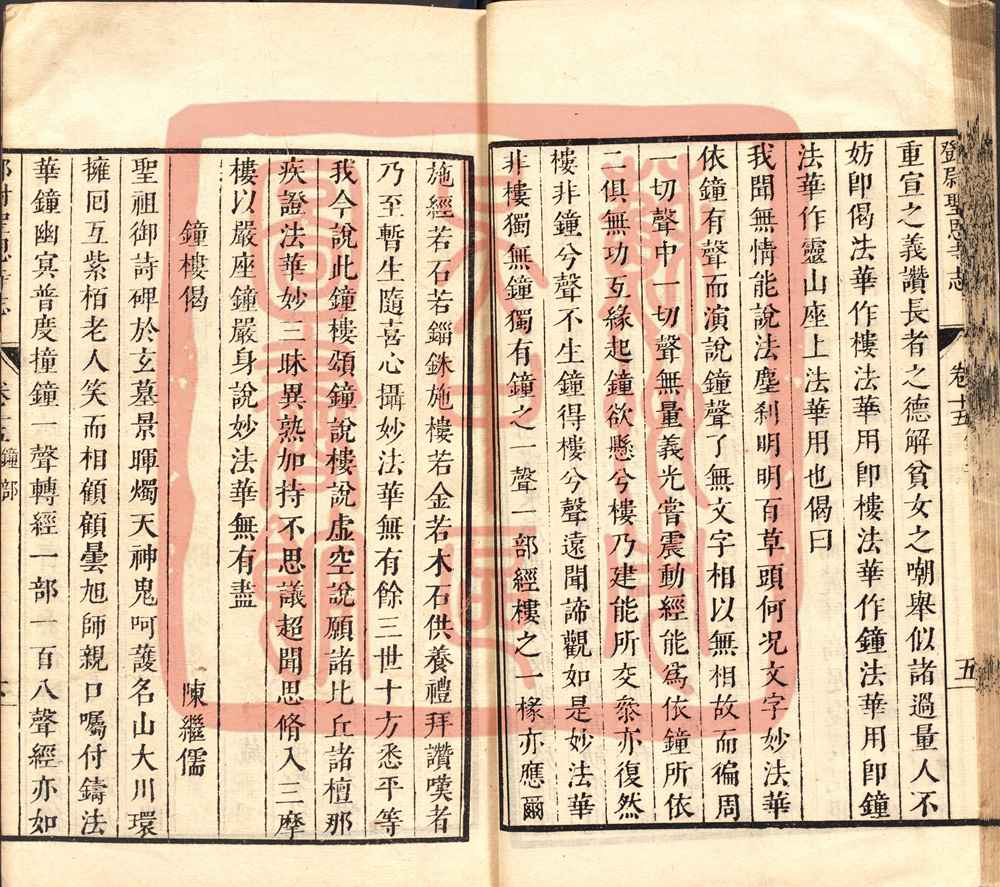 鄧尉聖恩寺志
卷十五
五
重宣之義讚長者之德解貧女之嘲舉似諸過量人不
妨卽偈法華作樓法華用卽樓法華作鐘法華用卽鐘
法華作靈山座上法華用也偈曰
我聞無情能說法塵刹明明百草頭何况文字妙法華
依鐘有聲而演說鐘聲了無文字相以無相故而徧周
一切聲中一切聲無量義光嘗震動經能爲依鐘所依
二俱無功互緣起鐘欲懸兮樓乃建能所交叅亦復然
樓非鐘兮聲不生鐘得樓兮聲遠聞諦觀如是妙法華
非樓獨無鐘獨有鐘之一聲一部經樓之一椽亦應爾
施經若石若錙銖施樓若金若木石供養禮拜讚嘆者
乃至暫生隨喜心攝妙法華無有餘三世十方悉平等
我今說此鐘樓頌鐘說樓說虛空說願諸比丘諸檀那
疾證法華妙三昧異熟加持不思議超聞思脩入三摩
樓以嚴座鐘嚴身說妙法華無有盡
鐘樓偈
陳繼儒
聖祖御詩碑於玄墓景暉燭天神鬼呵護名山大川環
擁囘互紫栢老人笑而相顧顧曇旭師親口囑付鑄法
華鐘幽冥普度撞鐘一聲轉經一部一百八聲經亦如